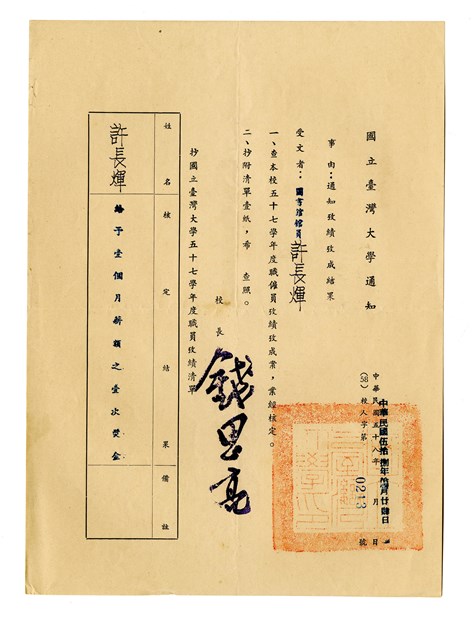 國立臺灣大學通知
中華民國五十八年　月　日
中華民國伍拾捌年
(58)校人字第0213號
事由：通知攷績攷成結果
受文者：圖書館館員 許長輝
一、查本校五十七學年度職僱員攷績攷成案，業經核定。
二、抄附清單壹紙，希　查照。
校長 錢思亮
抄國立臺灣大學五十七學年度職員攷績清單
姓名 核定結果 備註
許長輝 給予壹個月薪額之壹次奬金